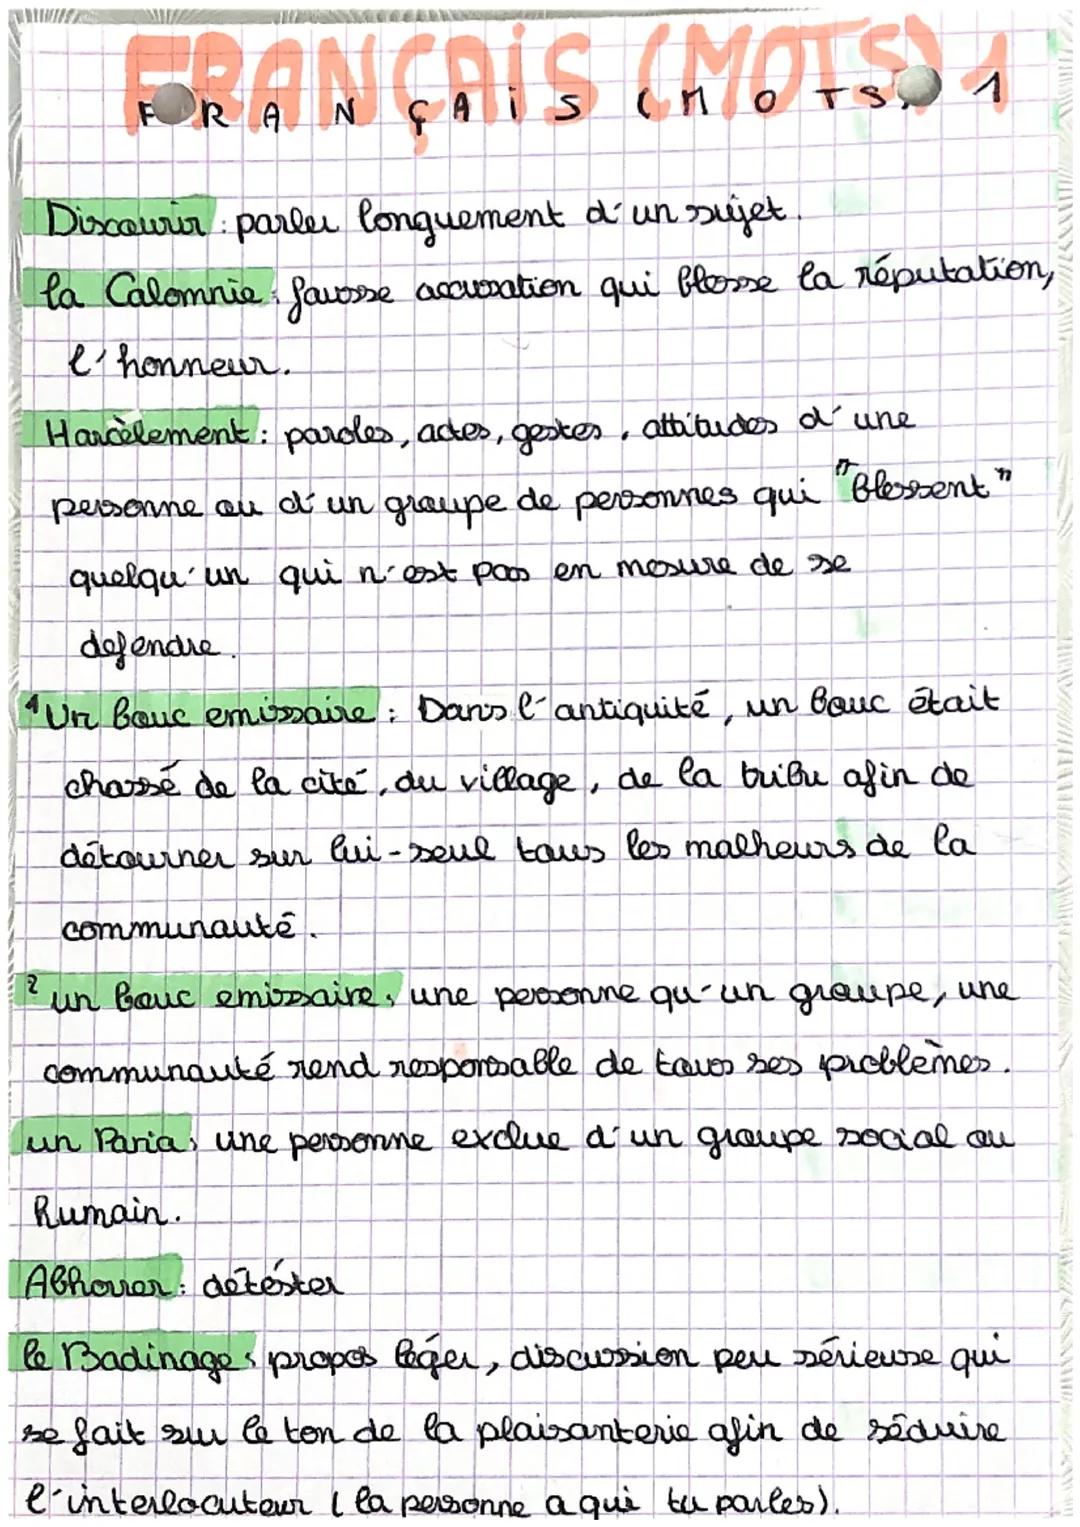 FRANÇAIS (MOTS) 1
FRANÇAIS (MOTS) 1
Discourir : parler longuement d'un sujet.
la Calomnie : fausse accusation qui blesse la réputation,
l'honneur.
Harcèlement : paroles, actes, gestes, attitudes d'une
personne ou d'un groupe de personnes qui "blessent"
quelqu'un qui n'est pas en mesure de se
defendre.
1 Un bouc emissaire : Dans l'antiquité, un bouc était
chassé de la cité, du village, de la tribu afin de
détourner sur lui-seul tous les malheurs de la
communauté.
2 un bouc emissaire : une personne qu'un groupe, une
communauté rend responsable de tous ses problèmes.
un Paria : une personne exclue d'un groupe social ou
Rumain.
Abhorrer : détéster
le Badinage : propos léger, discussion peu sérieuse qui
se fait sur le ton de la plaisanterie afin de séduire
l'interlocuteur (la personne a qui tu parles).